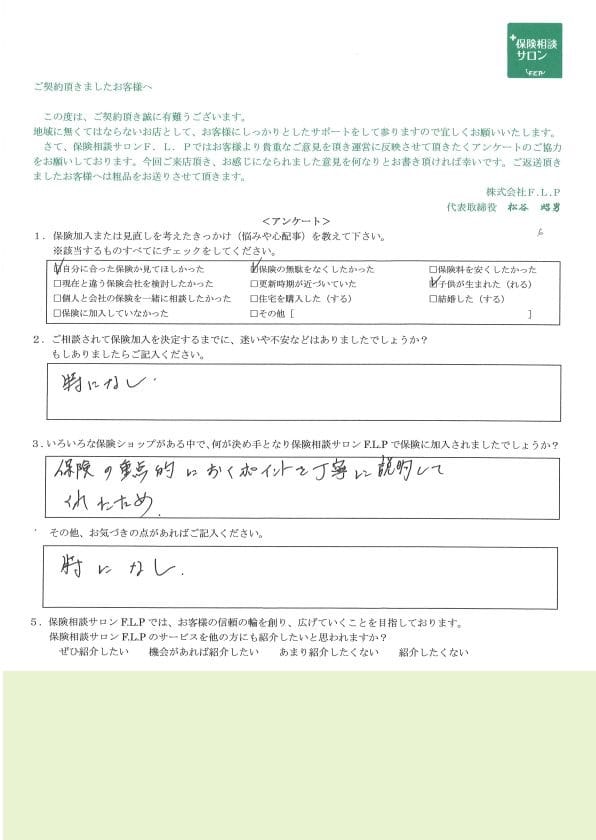 +保険相談
サロン
F.L.P
ご契約頂きましたお客様へ
この度は、ご契約頂き誠に有難うございます。
地域に無くてはならないお店として、お客様にしっかりとしたサポートをして参りますので宜しくお願いいたします。
さて、保険相談サロンF.L.Pではお客様より貴重なご意見を頂き運営に反映させて頂きたくアンケートのご協力
をお願いしております。今回ご来店頂き、お感じになられました意見を何なりとお書き頂ければ幸いです。ご返送頂き
ましたお客様へは粗品をお送りさせて頂きます。
株式会社F.L.P
代表取締役 松谷 昭男
<アンケート>
1．保険加入または見直しを考えたきっかけ（悩みや心配事）を教えて下さい。
※該当するものすべてにチェックをしてください。
☑自分に合った保険か見てほしかった ☑保険の無駄をなくしたかった □保険料を安くしたかった
□現在と違う保険会社を検討したかった □更新時期が近づいていた ☑子供が生まれた（れる）
□個人と会社の保険を一緒に相談したかった □住宅を購入した（する） □結婚した（する）
□保険に加入していなかった □その他［ ］
2．ご相談されて保険加入を決定するまでに、迷いや不安などはありましたでしょうか？
もしありましたらご記入ください。
特になし.
3．いろいろな保険ショップがある中で、何が決め手となり保険相談サロンF.L.Pで保険に加入されましたでしょうか？
保険の重点的におくポイントを丁寧に説明して
くれたため.
その他、お気づきの点があればご記入ください。
特になし.
5．保険相談サロンF.L.Pでは、お客様の信頼の輪を創り、広げていくことを目指しております。
保険相談サロンF.L.Pのサービスを他の方にも紹介したいと思われますか？
ぜひ紹介したい 機会があれば紹介したい あまり紹介したくない 紹介したくない